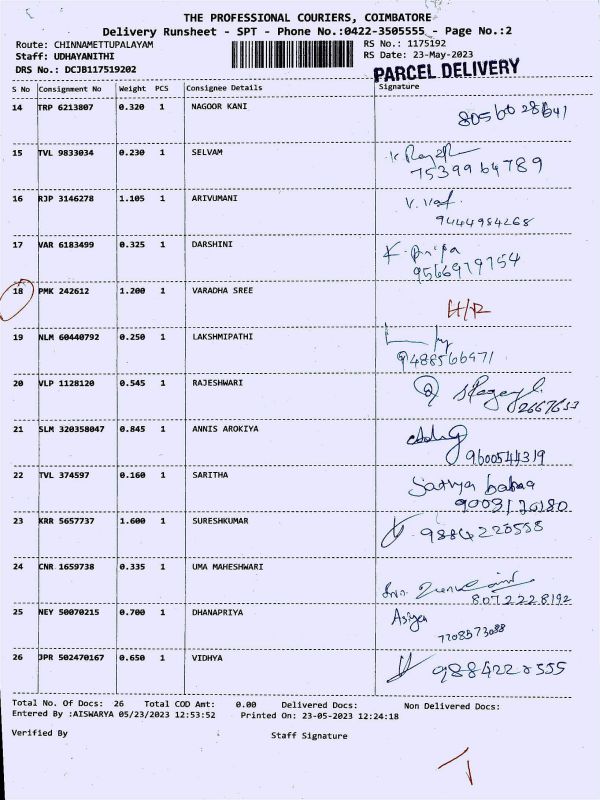 THE PROFESSIONAL COURIERS, COIMBATORE
Delivery Runsheet - SPT - Phone No.:0422-3505555 - Page No.:2
Route: CHINNAMETTUPALAYAM RS No.: 1175192
Staff: UDHAYANITHI RS Date: 23-May-2023
DRS No.: DCJB117519202 PARCEL DELIVERY
S No Consignment No Weight PCS Consignee Details Signature
14 TRP 6213807 0.320 1 NAGOOR KANI
15 TVL 9833034 0.230 1 SELVAM
7539964789
16 RJP 3146278 1.105 1 ARIVUMANI
9444984268
17 VAR 6183499 0.325 1 DARSHINI
9566979754
18 PMK 242612 1.200 1 VARADHA SREE
19 NLM 60440792 0.250 1 LAKSHMIPATHI
9488566971
20 VLP 1128120 0.545 1 RAJESHWARI
21 SLM 320358047 0.845 1 ANNIS AROKIYA
9600544319
22 TVL 374597 0.160 1 SARITHA
Sathya
23 KRR 5657737 1.600 1 SURESHKUMAR
24 CNR 1659738 0.335 1 UMA MAHESHWARI
8072228192
25 NEY 50070215 0.700 1 DHANAPRIYA
Asiya
7708573088
26 JPR 502470167 0.650 1 VIDHYA
Total No. Of Docs: 26 Total COD Amt: 0.00 Delivered Docs: Non Delivered Docs:
Entered By :AISWARYA 05/23/2023 12:53:52 Printed On: 23-05-2023 12:24:18
Verified By Staff Signature